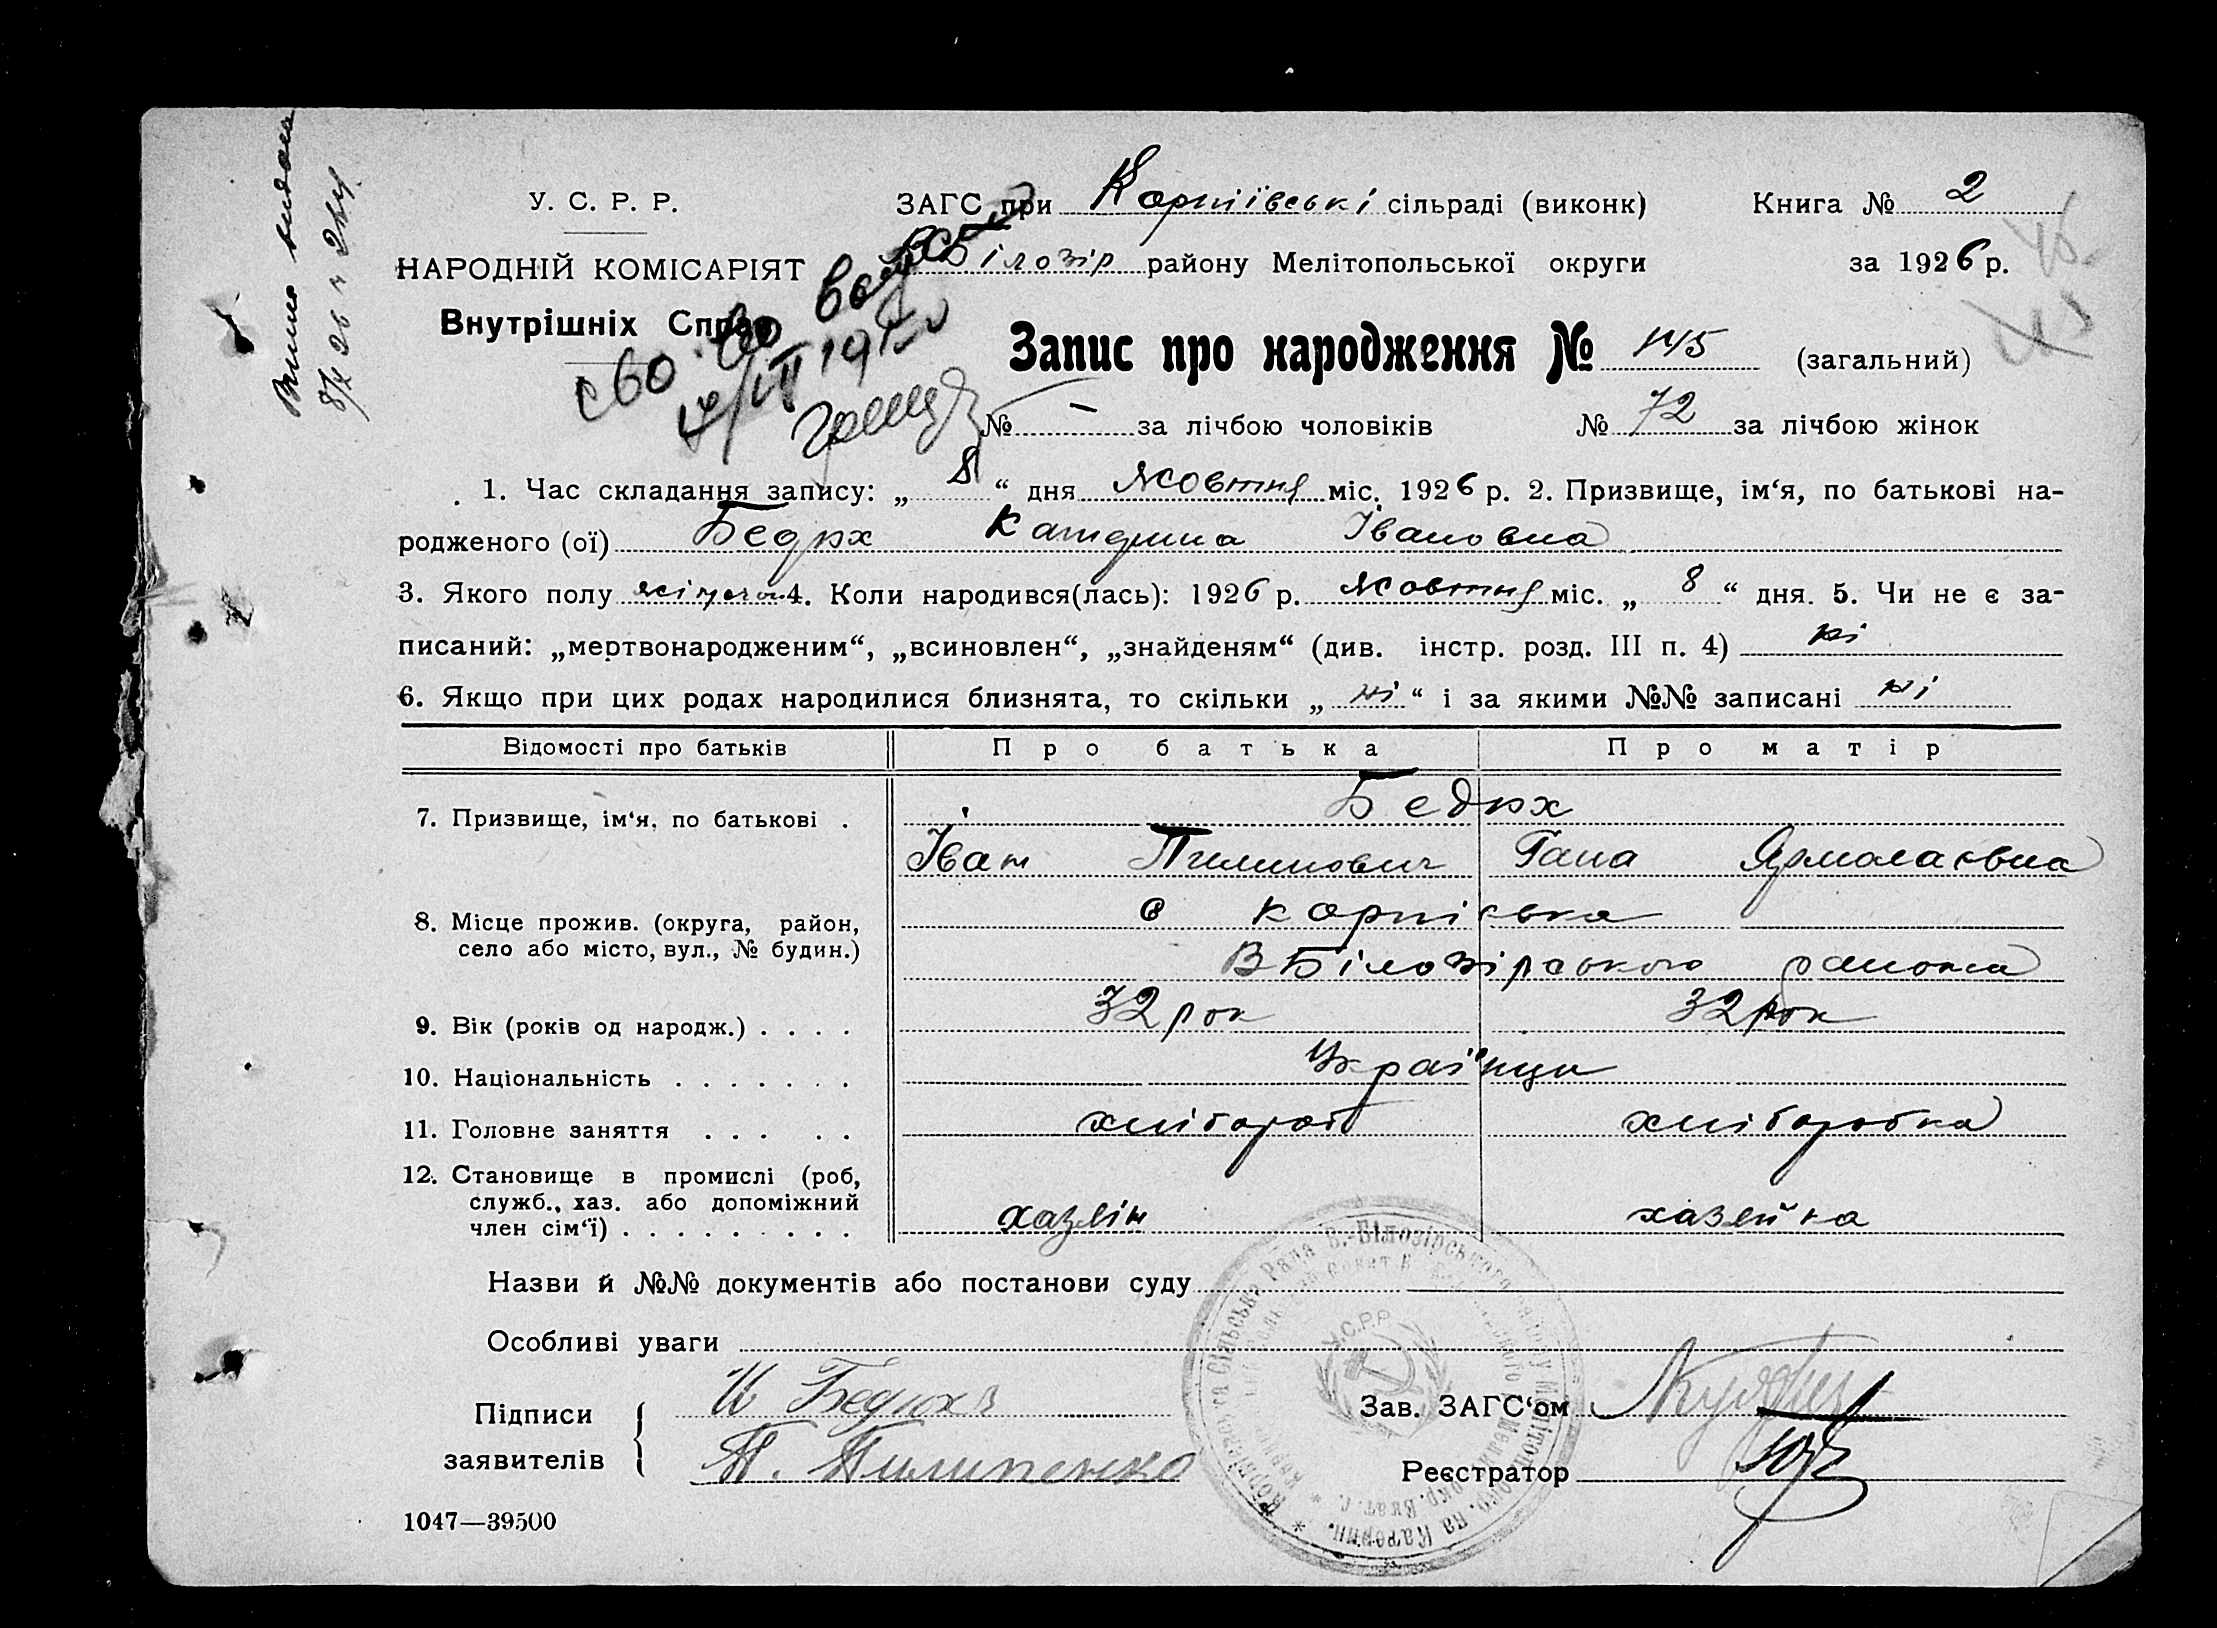 У. С. Р. Р.
НАРОДНІЙ КОМІСАРІЯТ
Внутрішніх Справ
ЗАГС при Корніївські сільраді (виконк)
В Білозір району Мелітопольської округи
Книга № 2
за 1926 р.
Запис про народження № 145 (загальний)
№ — за лічбою чоловіків № 72 за лічбою жінок
1. Час складання запису: „ 8 “ дня жовтня міс. 1926 р. 2. Призвище, ім‘я, по батькові на-
родженого (ої) Бедюх Катерина Івановна
3. Якого полу жіночого 4. Коли народився(лась): 1926 р. жовтня міс. „ 8 “ дня. 5. Чи не є за-
писаний: „мертвонародженим“, „всиновлен“, „знайденям“ (див. інстр. розд. III п. 4) ні
6. Якщо при цих родах народилися близнята, то скільки „ ні “ і за якими №№ записані ні
Відомості про батьків Про батька Про матір
7. Призвище, ім‘я, по батькові . Бедюх
Іван Пилипович Гана Ярмолаєвна
8. Місце прожив. (округа, район,
село або місто, вул., № будин.)
с Корніівка
В Білозірського района
9. Вік (років од народж.) . . . . 32 рок 32 рок
10. Національність . . . . . . . Українци
11. Головне заняття . . . . . хлібороб хліборобка
12. Становище в промислі (роб,
служб., хаз. або допоміжний
член сім‘ї) . . . . . . . . . хазяін хазейка
Назви й №№ документів або постанови суду
Особливі уваги
Підписи
заявителів
И Бедюхъ
П. Пилипенко
Зав. ЗАГС‘ом
Реєстратор
У.С.Р.Р.
1047—39500